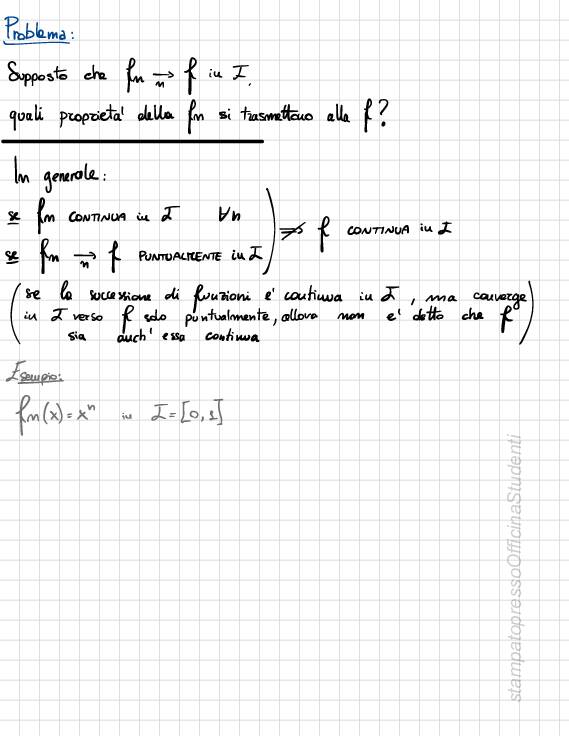 Problema:
Supposto che fn →n f in I.
quali proprieta' della fn si trasmettono alla f?
In generale:
se fn CONTINUA in I ∀n
⇏ f CONTINUA in I
se fn →n f PUNTUALMENTE in I
(se la successione di funzioni e' continua in I, ma converge
in I verso f solo puntualmente, allora non e' detto che f
sia anch'essa continua)
Esempio:
fn(x)=xⁿ in I=[0,1]
stampatopressoOfficinaStudenti